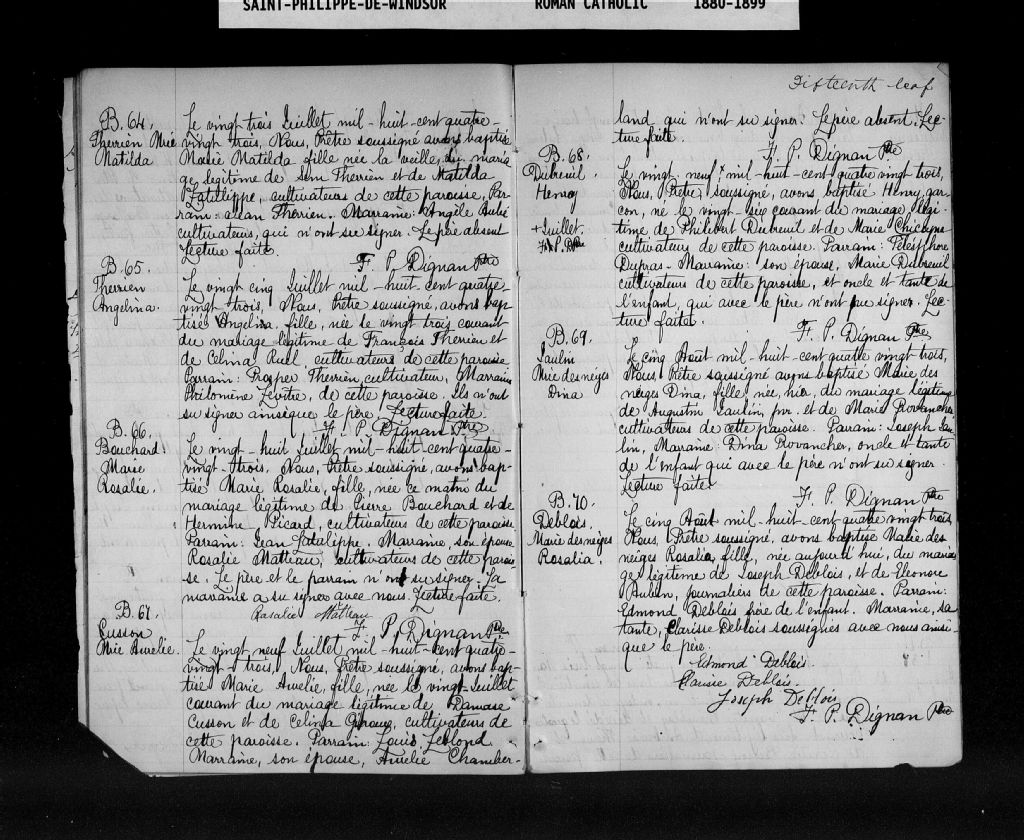 SAINT-PHILIPPE-DE-WINDSOR ROMAN CATHOLIC 1880-1899
B. 64.
Therrien Mrie
Matilda
Le vingt trois Juillet mil-huit-cent quatre-
vingt trois, Nous, Prêtre soussigné avons baptisé
Marie Matilda fille née la veille, du maria
ge légitime de Siméon Therrien et de Matilda
Latulippe, cultivateurs de cette paroisse, Par-
rain: Jean Therrien. Marraine: Angèle Aubé
cultivateurs, qui n'ont su signer. Le père absent
Lecture faite.
F. P. Dignan Ptre
B. 65.
Therrien
Angelina.
Le vingt cinq Juillet mil-huit-cent quatre
vingt trois, Nous, Prêtre soussigné, avons bap-
tisé Angelina, fille, née le vingt trois courant
du mariage légitime de François Therrien et
de Celina Ruel, cultivateurs de cette paroisse
Parrain: Prosper Therrien, cultivateur, Marraine
Philomène Levitre, de cette paroisse. Ils n'ont
su signer ainsi que le père, Lecture faite.
F. P. Dignan Ptre
B. 66.
Bouchard
Marie
Rosalie.
Le vingt-huit Juillet mil-huit-cent quatre-
vingt-trois, Nous, Prêtre soussigné, avons bap-
tisé Marie Rosalie, fille, née ce matin du
mariage légitime de Pierre Bouchard et de
Hermine Picard, cultivateurs de cette paroisse
Parrain: Jean Latulippe. Marraine, son épouse
Rosalie Matteau, cultivateurs de cette parois-
se. Le père et le parrain n'ont su signer. La
marraine a su signer avec nous. Lecture faite.
Rosalie Matteau
F. P. Dignan Ptre
B. 67.
Cusson
Mrie Aurelie.
Le vingt neuf Juillet mil-huit-cent quatre-
vingt-trois, Nous, Prêtre soussigné, avons bap-
tisé Marie Aurelie, fille, née le vingt Juillet
courant du mariage légitime de Damase
Cusson et de Celina Giroux, cultivateurs de
cette paroisse. Parrain Louis Leblond
Marraine, son épouse, Amelie Chamber-
Fifteenth leaf
land qui n'ont su signer. Le père absent. Lec-
ture faite.
F. P. Dignan Ptre
B. 68.
Dubreuil
Henry
+ Juillet.
F. P. D. Ptre
Le vingt-neuf + mil-huit-cent quatre vingt trois,
Nous, Prêtre soussigné, avons baptisé Henry, gar-
con, né le vingt-six courant du mariage légi-
time de Philibert Dubreuil et de Marie Chicoyne
cultivateurs de cette paroisse. Parrain: Télésphore
Dupras. Marraine: son épouse, Marie Dubreuil
cultivateurs de cette paroisse, et oncle et tante de
l'enfant, qui avec le père n'ont pu signer. Lec-
ture faite.
F. P. Dignan Ptre
B. 69.
Paulin
Mrie des neiges
Dina
Le cinq Août mil-huit-cent quatre vingt trois,
Nous, Prêtre soussigné avons baptisé Marie des
neiges Dina, fille, née, hier, du mariage légitime
de Augustin Paulin, jnr. et de Marie Provancher
cultivateurs de cette paroisse. Parrain: Joseph Pau-
lin, Marraine: Dina Provancher, oncle et tante
de l'enfant qui avec le père n'ont su signer.
Lecture faite.
F. P. Dignan Ptre
B. 70.
Deblois.
Marie des neiges
Rosalia.
Le cinq Août mil-huit-cent quatre vingt trois
Nous, Prêtre soussigné, avons baptisé Marie des
neiges Rosalia, fille, née aujourd'hui, du maria
ge légitime de Joseph Deblois, et de Eleonore
Aubin, journaliers de cette paroisse. Parrain:
Edmond Deblois frère de l'enfant. Marraine, sa
tante, Clarisse Deblois soussignés avec nous ainsi
que le père.
Edmond Deblois.
Clarisse Deblois.
Joseph Deblois
F. P. Dignan Ptre